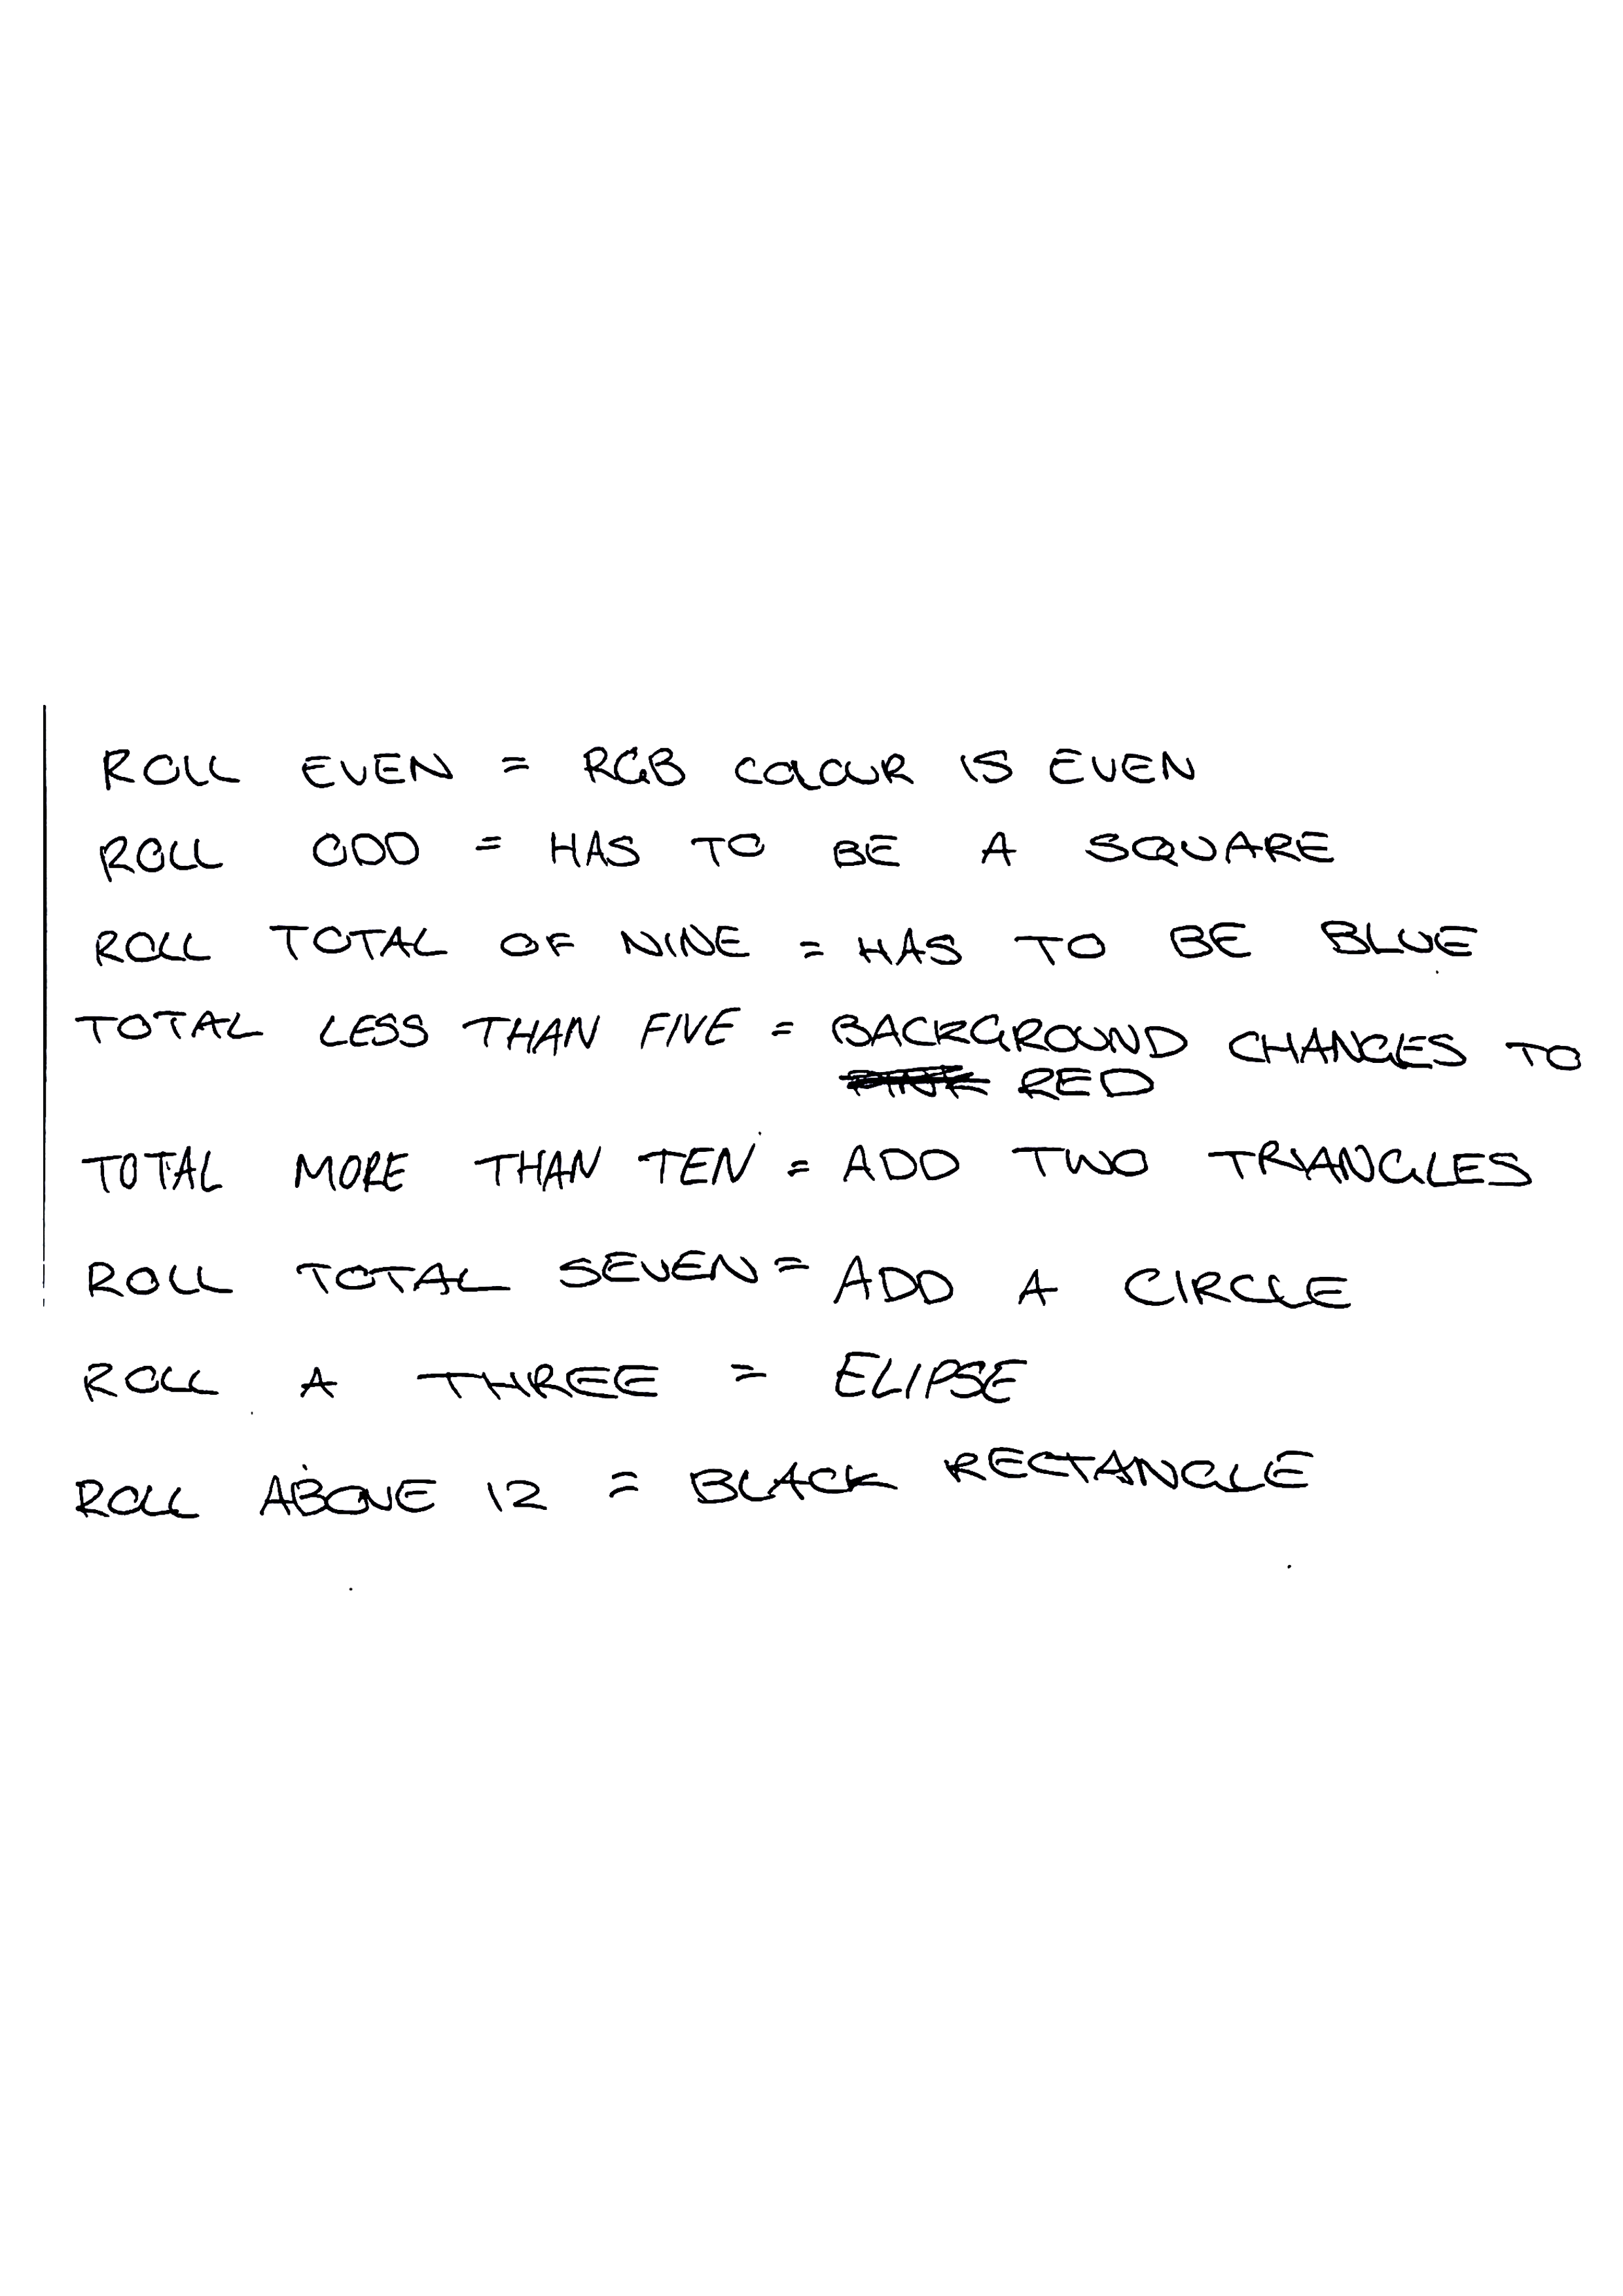 ROLL EVEN = RGB COLOUR IS EVEN
ROLL ODD = HAS TO BE A SQUARE
ROLL TOTAL OF NINE = HAS TO BE BLUE
TOTAL LESS THAN FIVE = BACKGROUND CHANGES TO
RED
TOTAL MORE THAN TEN = ADD TWO TRIANGLES
ROLL TOTAL SEVEN = ADD A CIRCLE
ROLL A THREE = ELIPSE
ROLL ABOVE 12 = BLACK RECTANGLE